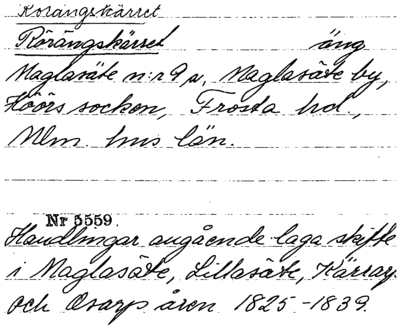 Korängskärret
Rörängskärret äng
Maglasäte n:r 9 a, Maglasäte by,
Höörs socken, Frosta hd.,
Mlm. hus län.
Nr 5559.
Handlingar angående laga skifte
i Maglasäte, Lillasäte, Kärrarp
och Osarp åren 1825-1839.